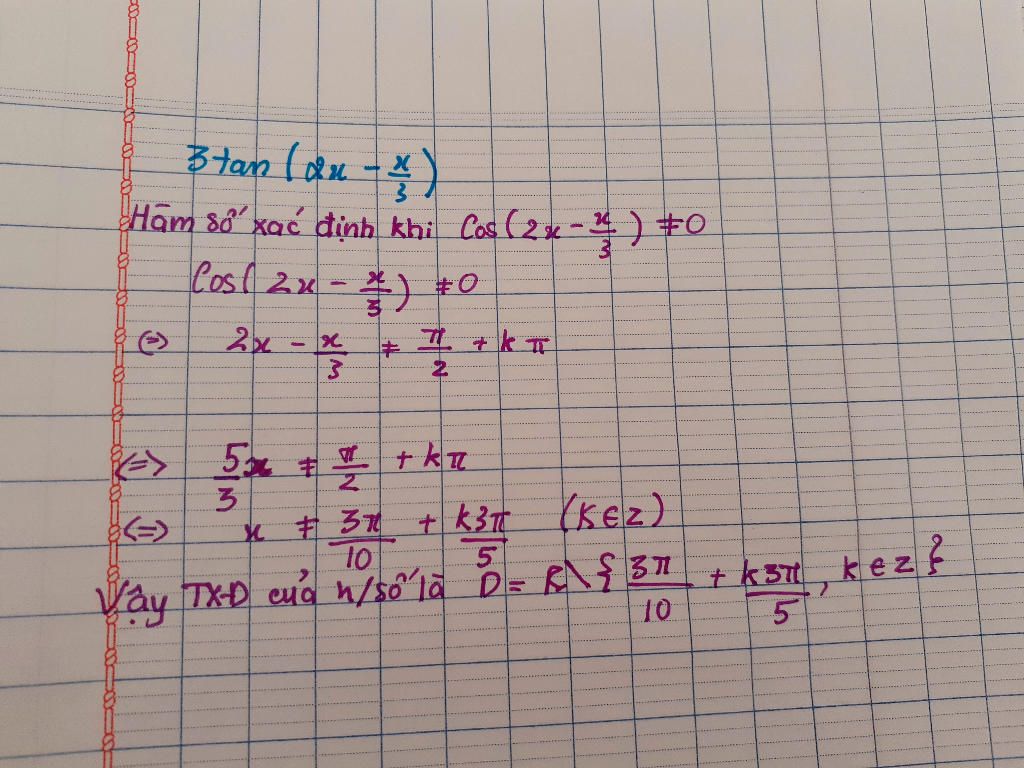 3tan (2x - x/3)
Hàm số xác định khi Cos(2x - x/3) ≠0
Cos(2x - x/3) ≠0
(=) 2x - x/3 ≠ π/2 + kπ
<=> 5/3x ≠ π/2 + kπ
(=) x ≠ 3π/10 + k3π/5 (K∈Z)
Vậy TXĐ của h/số là D = R\{3π/10 + k3π/5, k∈Z}